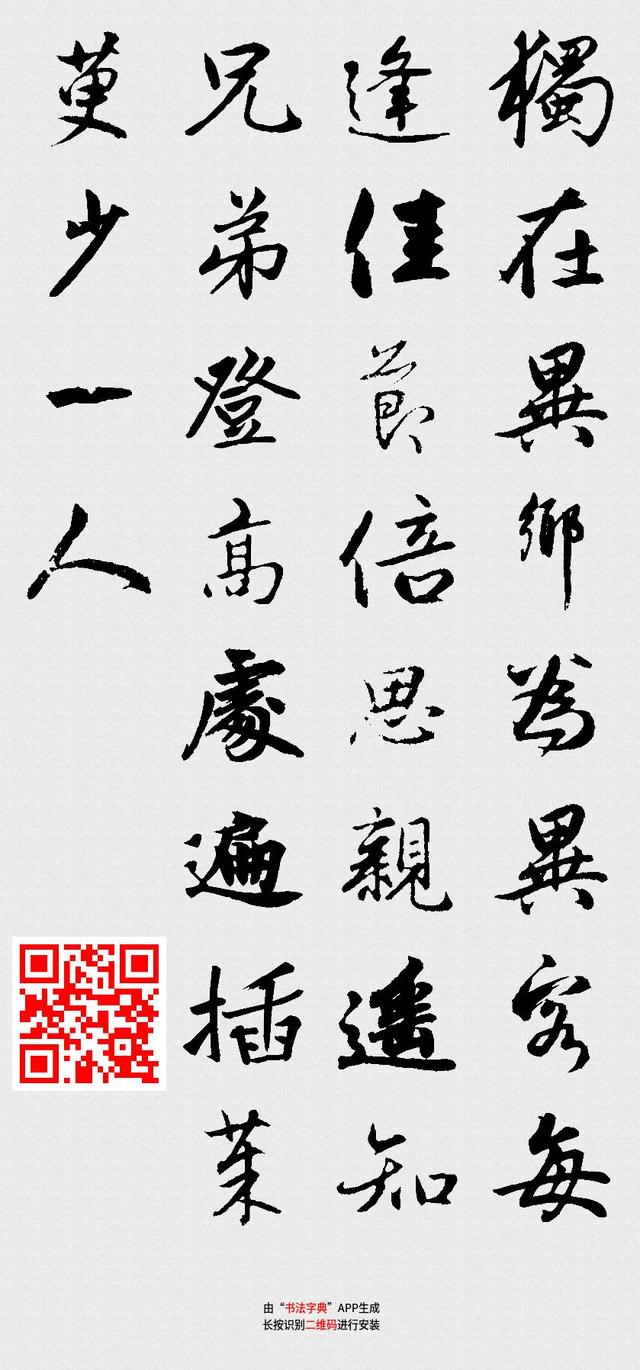 獨在異鄉為異客每
逢佳節倍思親遥知
兄弟登高處遍插茱
萸少一人
由“书法字典”APP生成
长按识别二维码进行安装